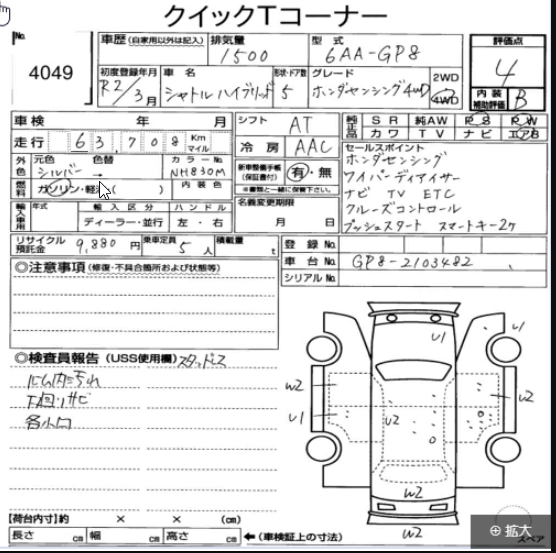 クイックTコーナー
No.
4049
車歴 (自家用以外は記入)
排気量
1500
型式
6AA-GP8
評価点
4
内装
補助評価
B
初度登録年月
R2/3月
車名
シャトル ハイブリッド
形状・ドア数
5
グレード
ホンダセンシング4WD
2WD
4WD
車検 年 月
走行
63,708
Km
マイル
シフト
AT
冷房
AAC
純正品
SR 純AW PS PW
カワ TV ナビ エアB
外色
元色
シルバー
色替
→
カラーNo.
NH830M
燃料
ガソリン・軽油 ( )
内装色
新車整備手帳
(保証書付)
有・無
※書類と一緒に保管下さい。
セールスポイント
ホンダセンシング
ワイパーディアイサー
ナビ TV ETC
クルーズコントロール
プッシュスタート スマートキー2ケ
輸入車用
年式
輸入区分
ディーラー・並行
ハンドル
左・右
名義変更期限
月 日
リサイクル
預託金
9,880円
乗車定員
5人
積載量
t
登録No.
車台No.
GP8-2103482
シリアルNo.
◎注意事項 (修復・不具合箇所および状態等)
◎検査員報告 (USS使用欄) スタッドレス
下回りサビ
各小口
U1
U1
W2
U1
U2
W2
W2
W2
【荷台内寸】約 × × (cm)
長さ cm 幅 cm 高さ cm
←(車検証上の寸法)
スペア
拡大